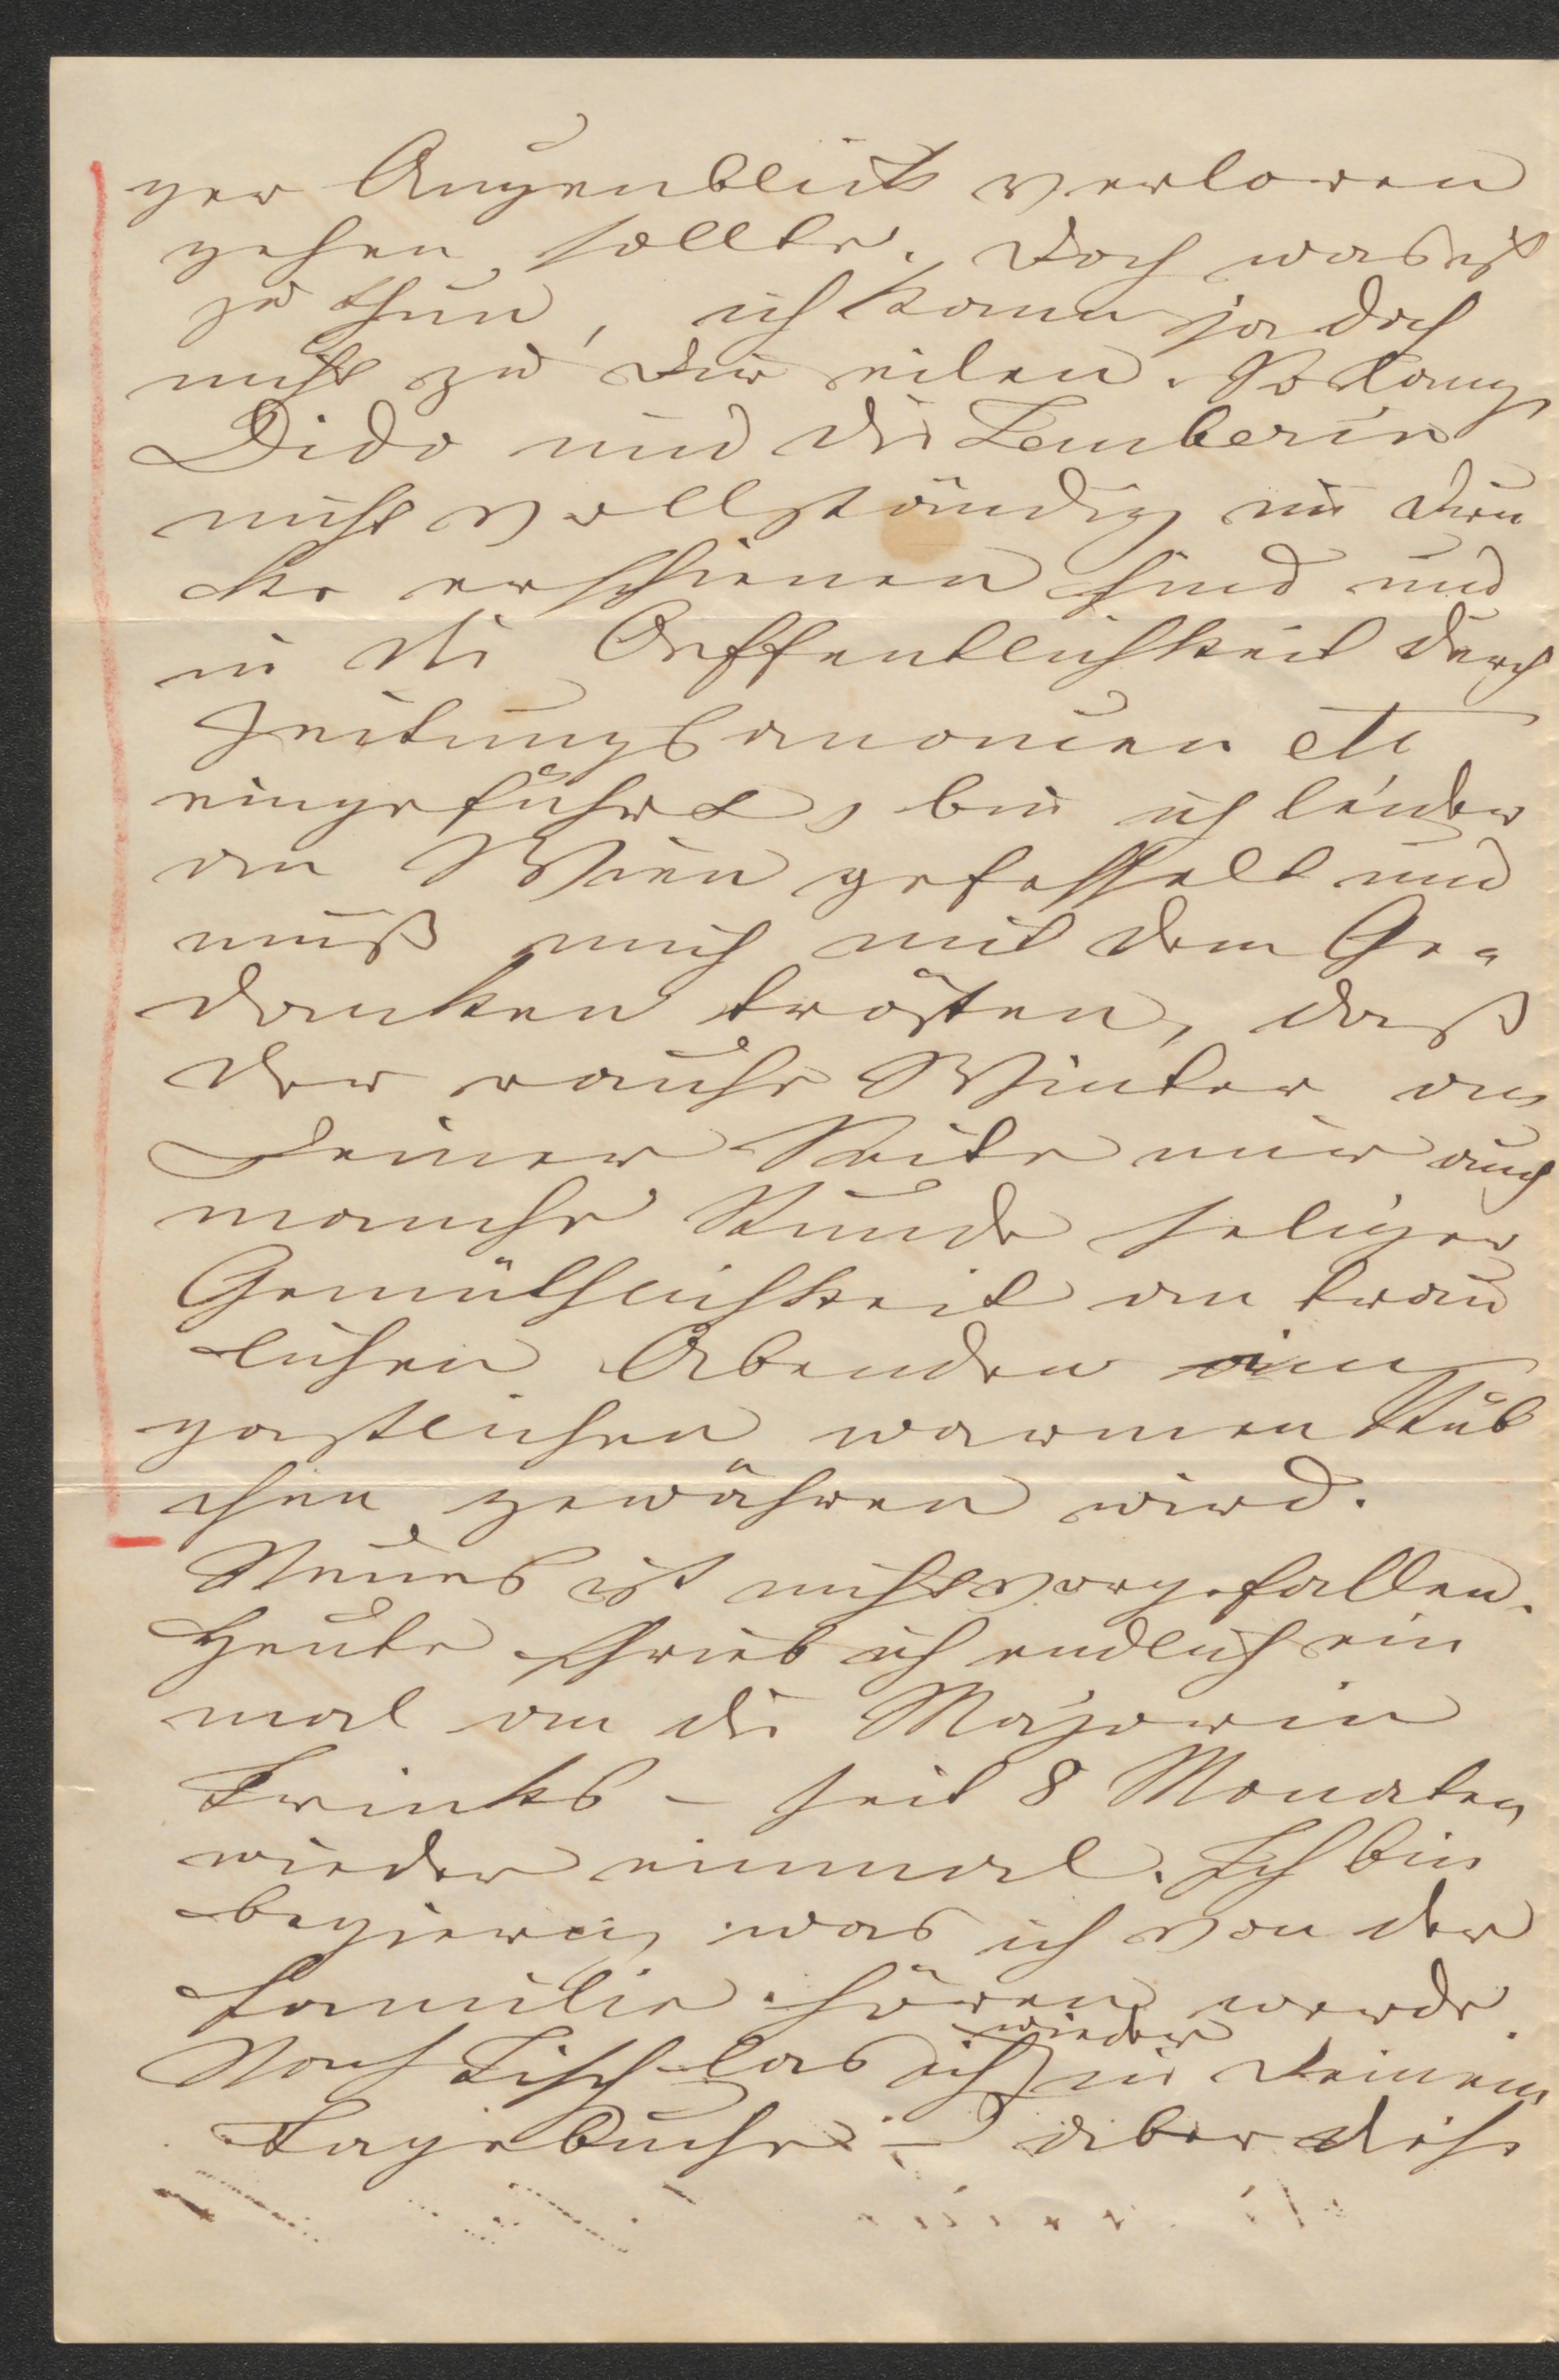 ger Augenblick verloren
gehen sollte. Doch was ist
zu thun, ich kann ja doch
nicht zu Dir eilen. So lang
Dido und die Lemberin
nicht vollständig im Dru
cke erschienen sind und
in die Oeffentlichkeit durch
Zeitungsanoncen etc
eingeführt, bin ich leider
an Wien gefesselt und
muß mich mit dem Ge-
danken trösten, daß
der rauhe Winter an
Deiner Seite mir auch
manche Stunde seliger
Gemüthlichkeit an trau
lichen Abenden im
gastlichen warmen Stüb
chen gewähren wird.
Neues ist nicht vorgefallen.
Heute schrieb ich endlich ein
mal an die Majorin
Trinks – seit 8 Monaten
wieder einmal. Ich bin
begierig was ich von der
Familie hören werde.
Nach Tisch las ich wieder in Deinem
Tagebuche – aber diese